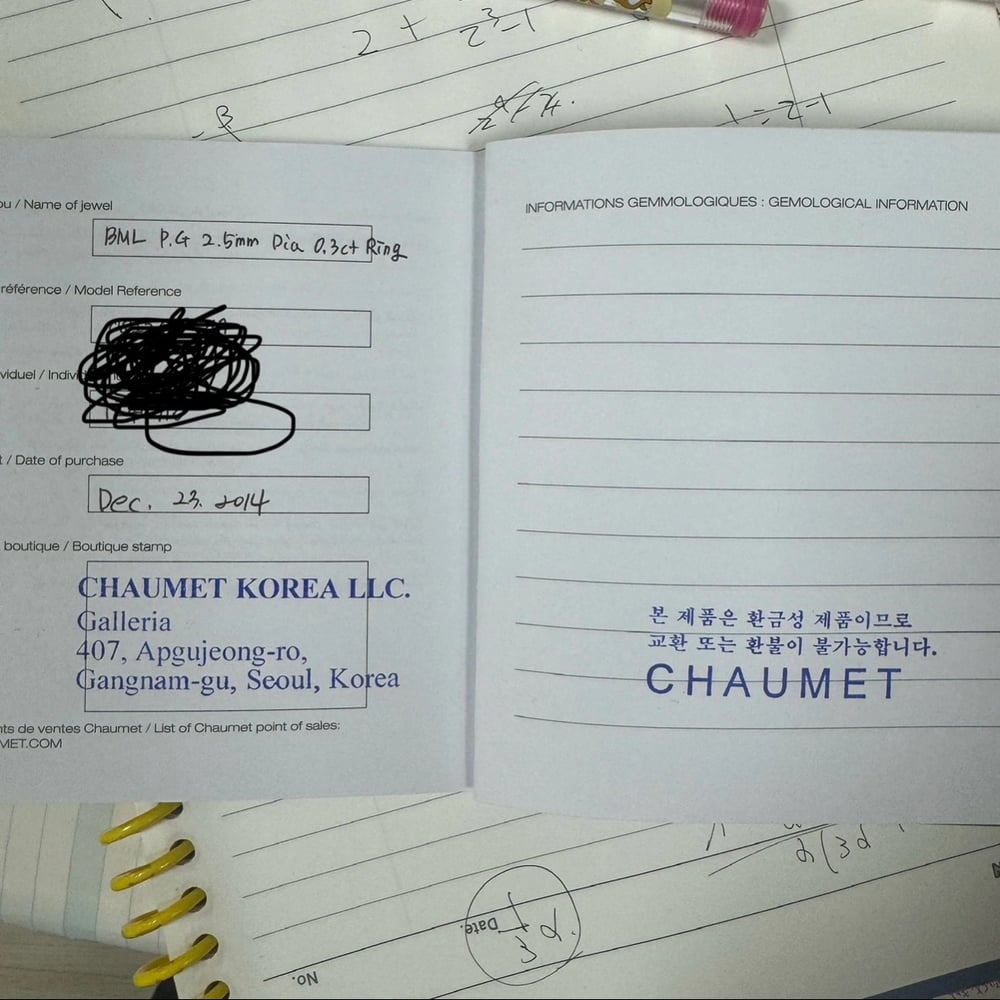 2 + z³-1
1 = z-1
ou / Name of jewel
BML P.G 2.5mm Dia 0.3ct Ring
référence / Model Reference
viduel / Indivi
t / Date of purchase
Dec. 23. 2014
boutique / Boutique stamp
CHAUMET KOREA LLC.
Galleria
407, Apgujeong-ro,
Gangnam-gu, Seoul, Korea
nts de ventes Chaumet / List of Chaumet point of sales:
MET.COM
INFORMATIONS GEMMOLOGIQUES : GEMOLOGICAL INFORMATION
본 제품은 환금성 제품이므로
교환 또는 환불이 불가능합니다.
CHAUMET
Date.
No.